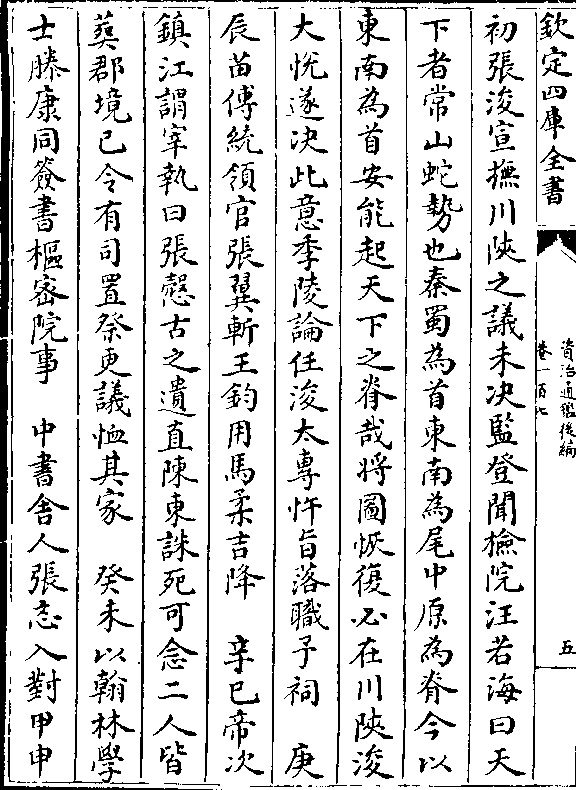 欽定四庫全書
資治通鑑後編
卷一百七
五
初張浚宣撫川陝之議未決監登聞檢院汪若海曰天
下者常山蛇勢也秦蜀為首東南為尾中原為脊今以
東南為首安能起天下之脊哉將圖恢復必在川陝浚
大悅遂决此意季陵論任浚太專忤旨落職予祠　庚
辰苗傅統領官張翼斬王鈞用馬柔吉降　辛巳帝次
鎮江謂宰執曰張慤古之遺直陳東誅死可念二人皆
葬郡境已令有司置祭更議恤其家　癸未以翰林學
士滕康同簽書樞密院事　中書舍人張忞入對甲申